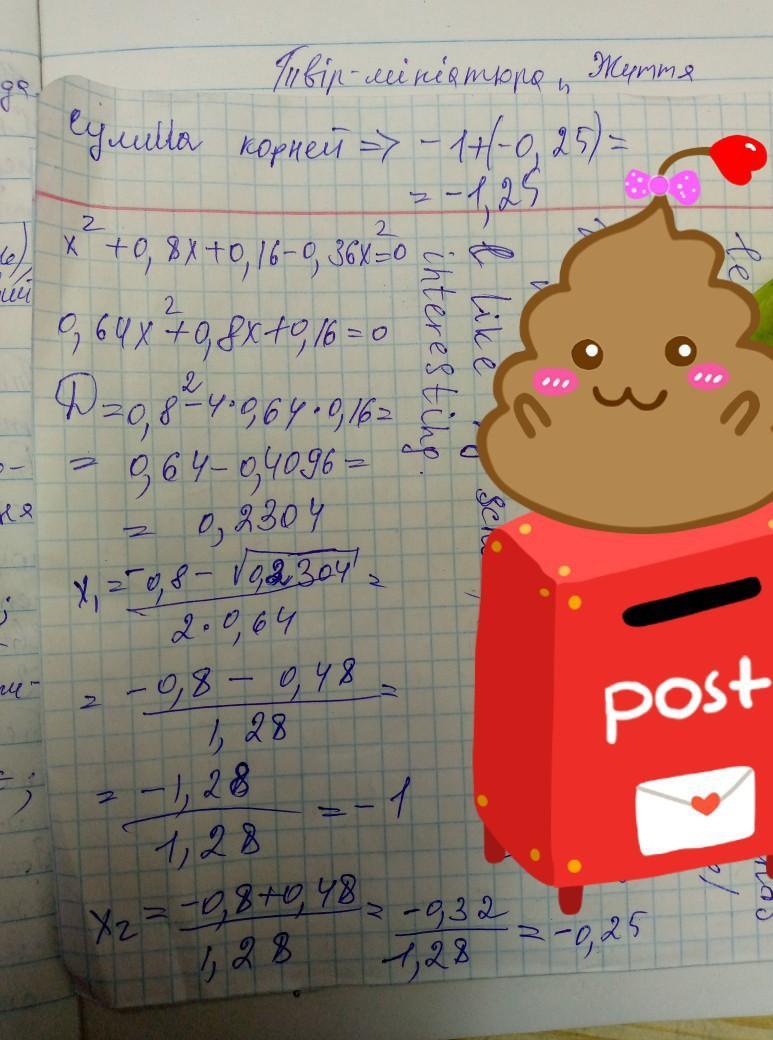 Твір-мініатюра „ Життя
Сумма корней => -1+(-0,25)=
= -1,25
x²+0,8x+0,16-0,36x²=0
0,64x²+0,8x+0,16=0
D=0,8²-4·0,64·0,16=
= 0,64-0,4096=
= 0,2304
x₁ = (-0,8-√0,2304)/(2·0,64) =
= (-0,8-0,48)/1,28 =
= -1,28/1,28 = -1
x₂ = (-0,8+0,48)/1,28 = -0,32/1,28 = -0,25
like
interesting.
post